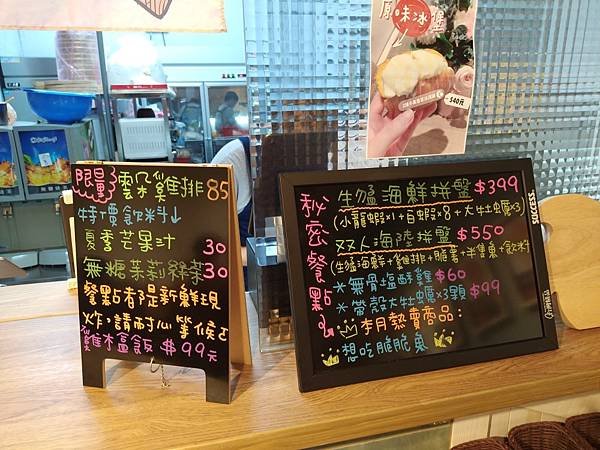 限量 雲朵雞排 85
特價飲料↓
夏季芒果汁 30
無糖茉莉綠茶 30
餐點都是新鮮現
炸,請耐心等候
雞米盒飯 $99元
原味冰鹽
540元
SUCCESS.
秘密餐點
生猛海鮮拼盤 $399
(小龍蝦×1+白蝦×8+大牡蠣×3)
双人海陸拼盤 $550
(生猛海鮮+雞排+脆薯+半隻魚+飲料
*無骨鹽酥雞 $60
*帶殼大牡蠣×3顆 $99
本月熱賣商品:
想吃脆脆魚